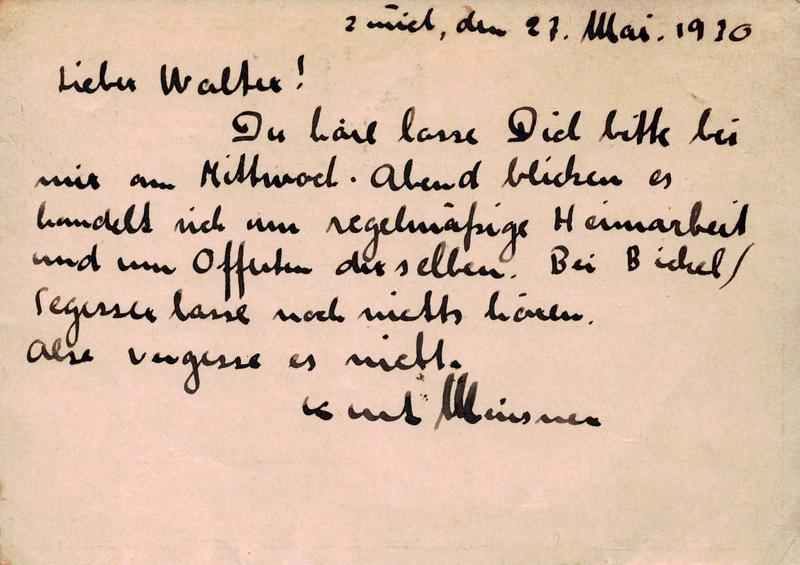 Zürich, den 27. Mai. 1930
Lieber Walter!
Du höre lasse Dich bitte bei
mir am Mittwoch. Abend blicken es
handelt sich um regelmäßige Heimarbeit
und um Offerten derselben. Bei Bickel/
Segesser lasse noch nichts hören.
Also vergesse es nicht.
Kurt Meisner